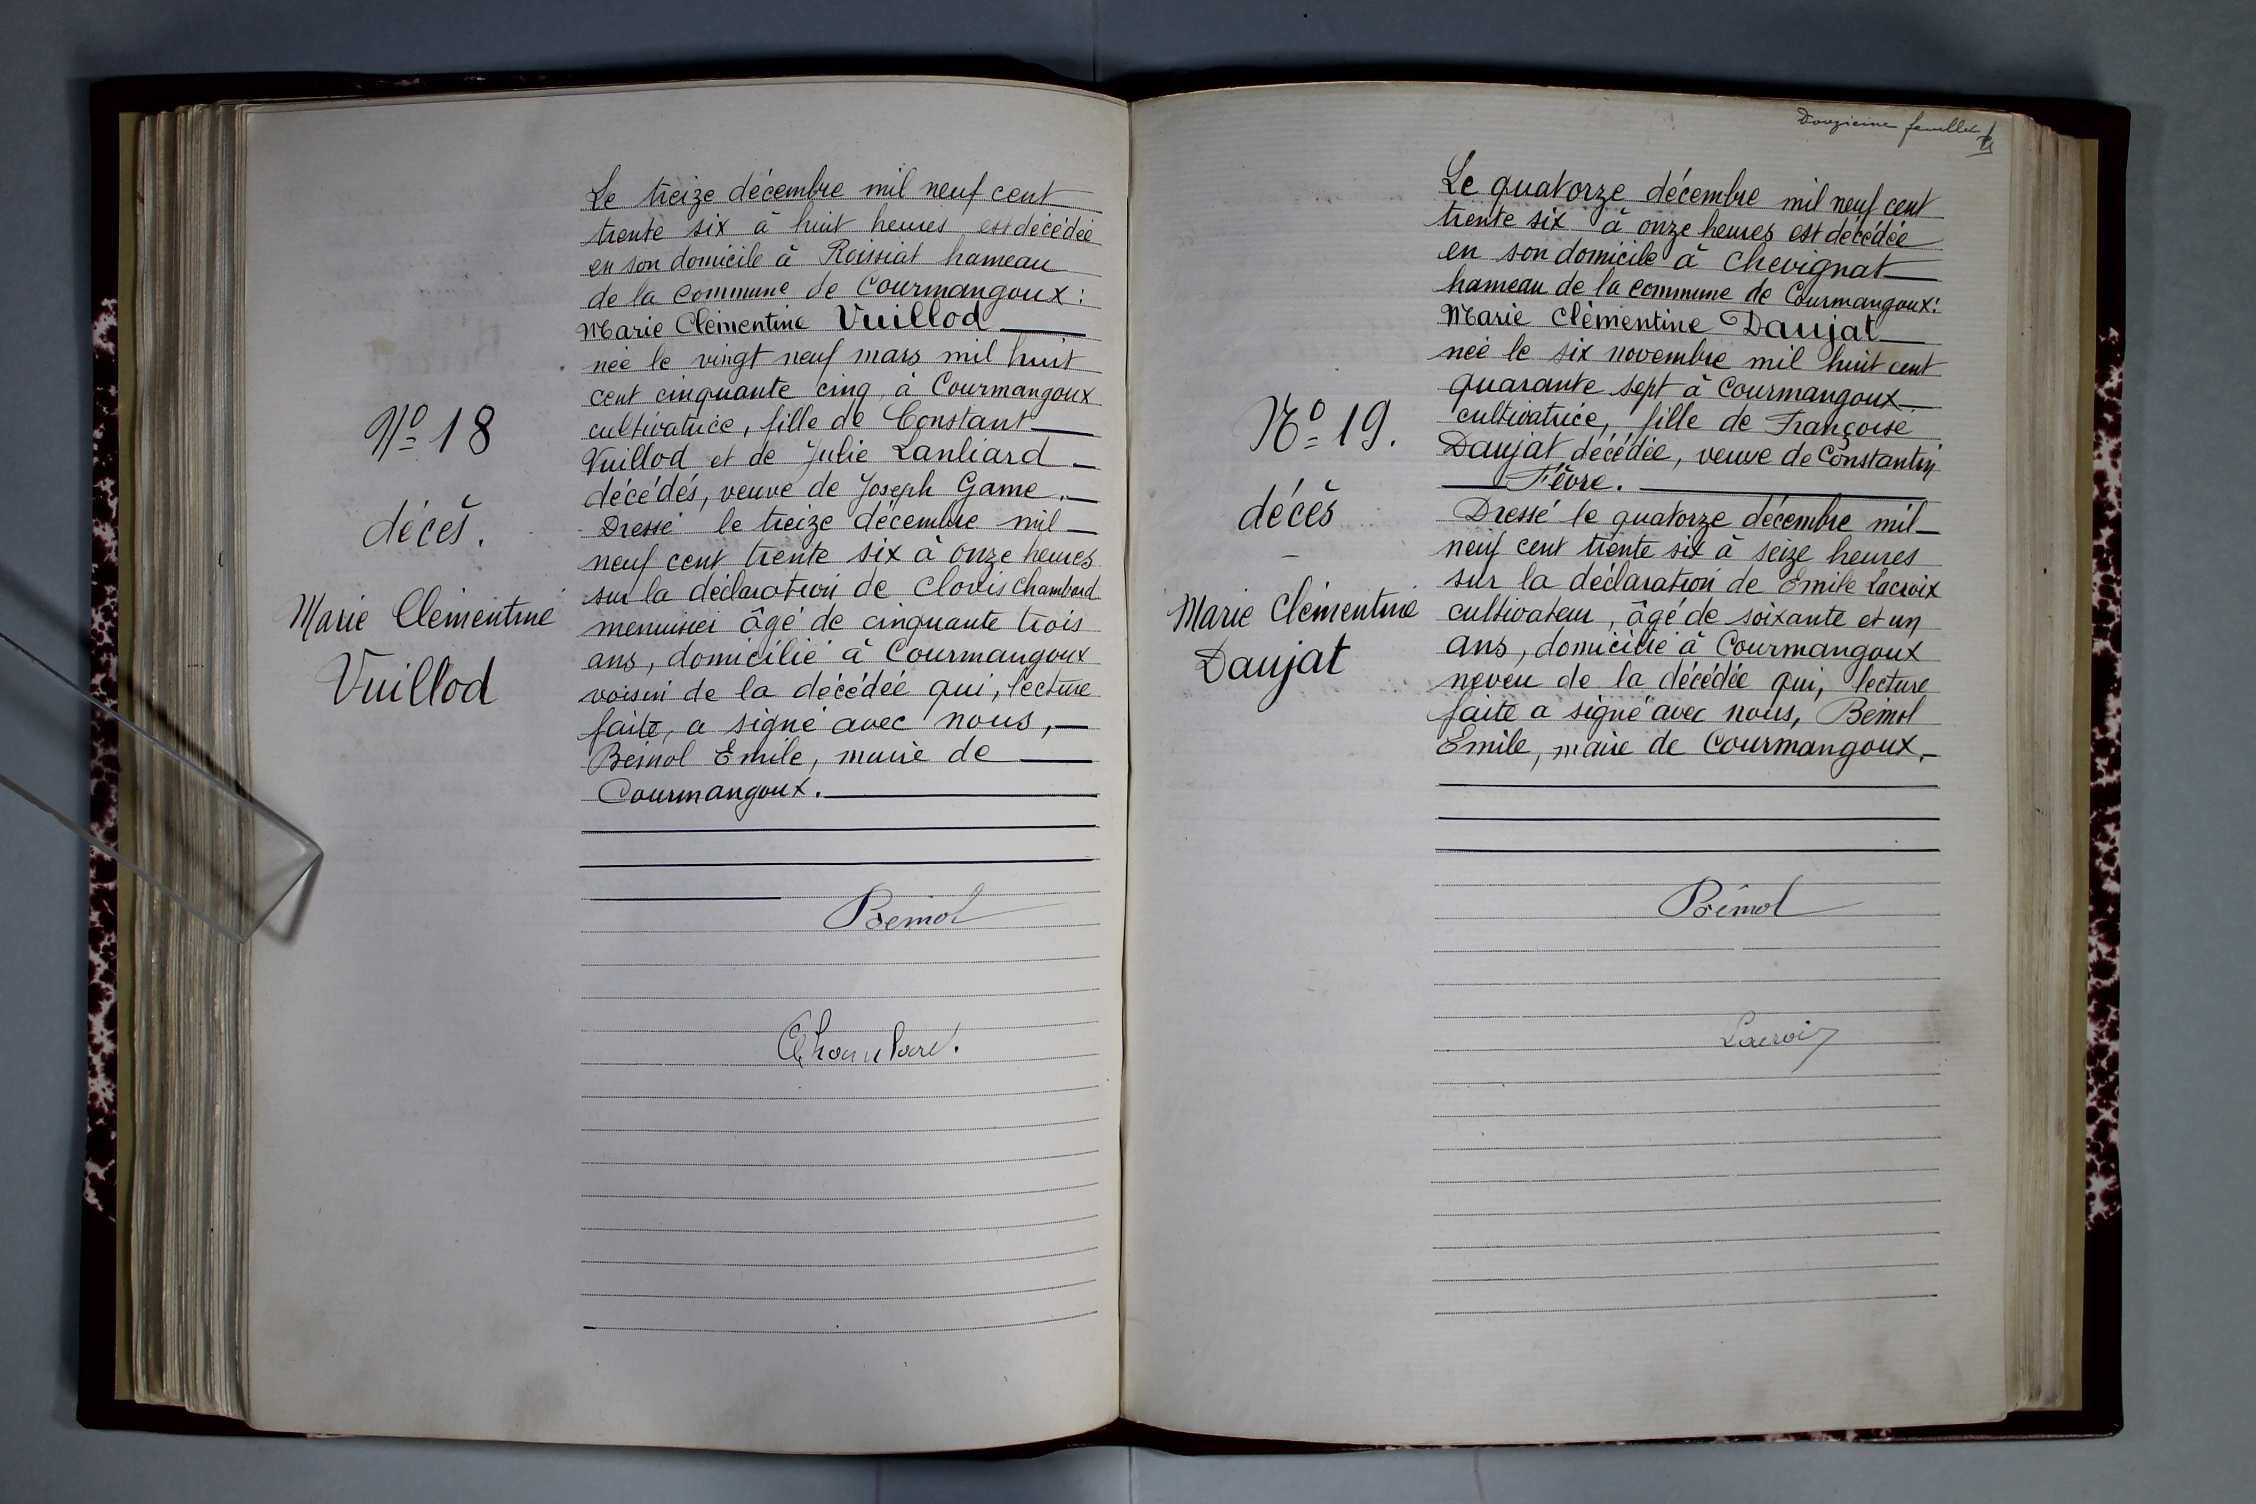 Nº 18
décès.
Marie Clémentine
Vuillod
Le treize décembre mil neuf cent
trente six à huit heures est décédée
en son domicile à Roissiat hameau
de la commune de Courmangoux :
Marie Clémentine Vuillod
née le vingt neuf mars mil huit
cent cinquante cinq à Courmangoux
cultivatrice, fille de Constant
Vuillod et de Julie Lanliard
décédés, veuve de Joseph Game.
Dressé le treize décembre mil
neuf cent trente six à onze heures
sur la déclaration de Clovis Chambard
menuisier âgé de cinquante trois
ans, domicilié à Courmangoux
voisin de la décédée qui, lecture
faite, a signé avec nous,
Bémol Emile, maire de
Courmangoux.
Bémol
Chambard.
Douzième feuillet
Nº 19.
décès
Marie Clémentine
Daujat
Le quatorze décembre mil neuf cent
trente six à onze heures est décédée
en son domicile à Chevignat
hameau de la commune de Courmangoux :
Marie Clémentine Daujat
née le six novembre mil huit cent
quarante sept à Courmangoux
cultivatrice, fille de Françoise
Daujat décédée, veuve de Constantin
Fèvre.
Dressé le quatorze décembre mil
neuf cent trente six à seize heures
sur la déclaration de Emile Lacroix
cultivateur, âgé de soixante et un
ans, domicilié à Courmangoux
neveu de la décédée qui, lecture
faite a signé avec nous, Bémol
Emile, maire de Courmangoux.
Bémol
Lacroix